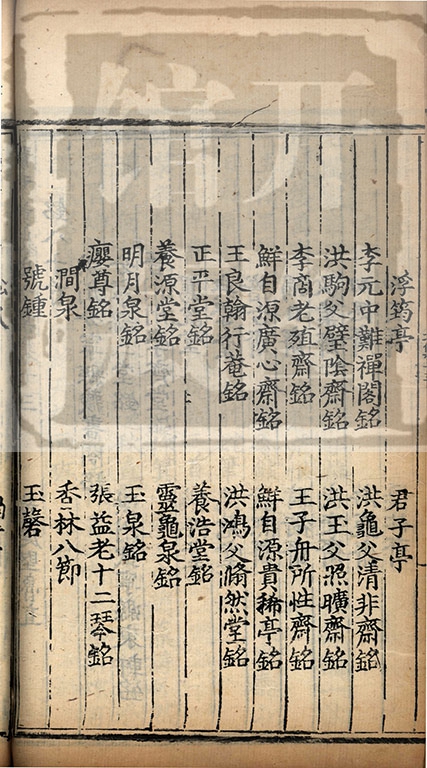 浮筠亭 君子亭
李元中難禪閣銘 洪龜父清非齋銘
洪駒父璧陰齋銘 洪玉父照曠齋銘
李商老殖齋銘 王子舟所性齋銘
鮮自源廣心齋銘 鮮自源貴稀亭銘
王良翰行菴銘 洪鴻父翛然堂銘
正平堂銘 養浩堂銘
養源堂銘 靈龜泉銘
明月泉銘 玉泉銘
癭尊銘 張益老十二琴銘
澗泉 香林八節
號鍾 玉磬